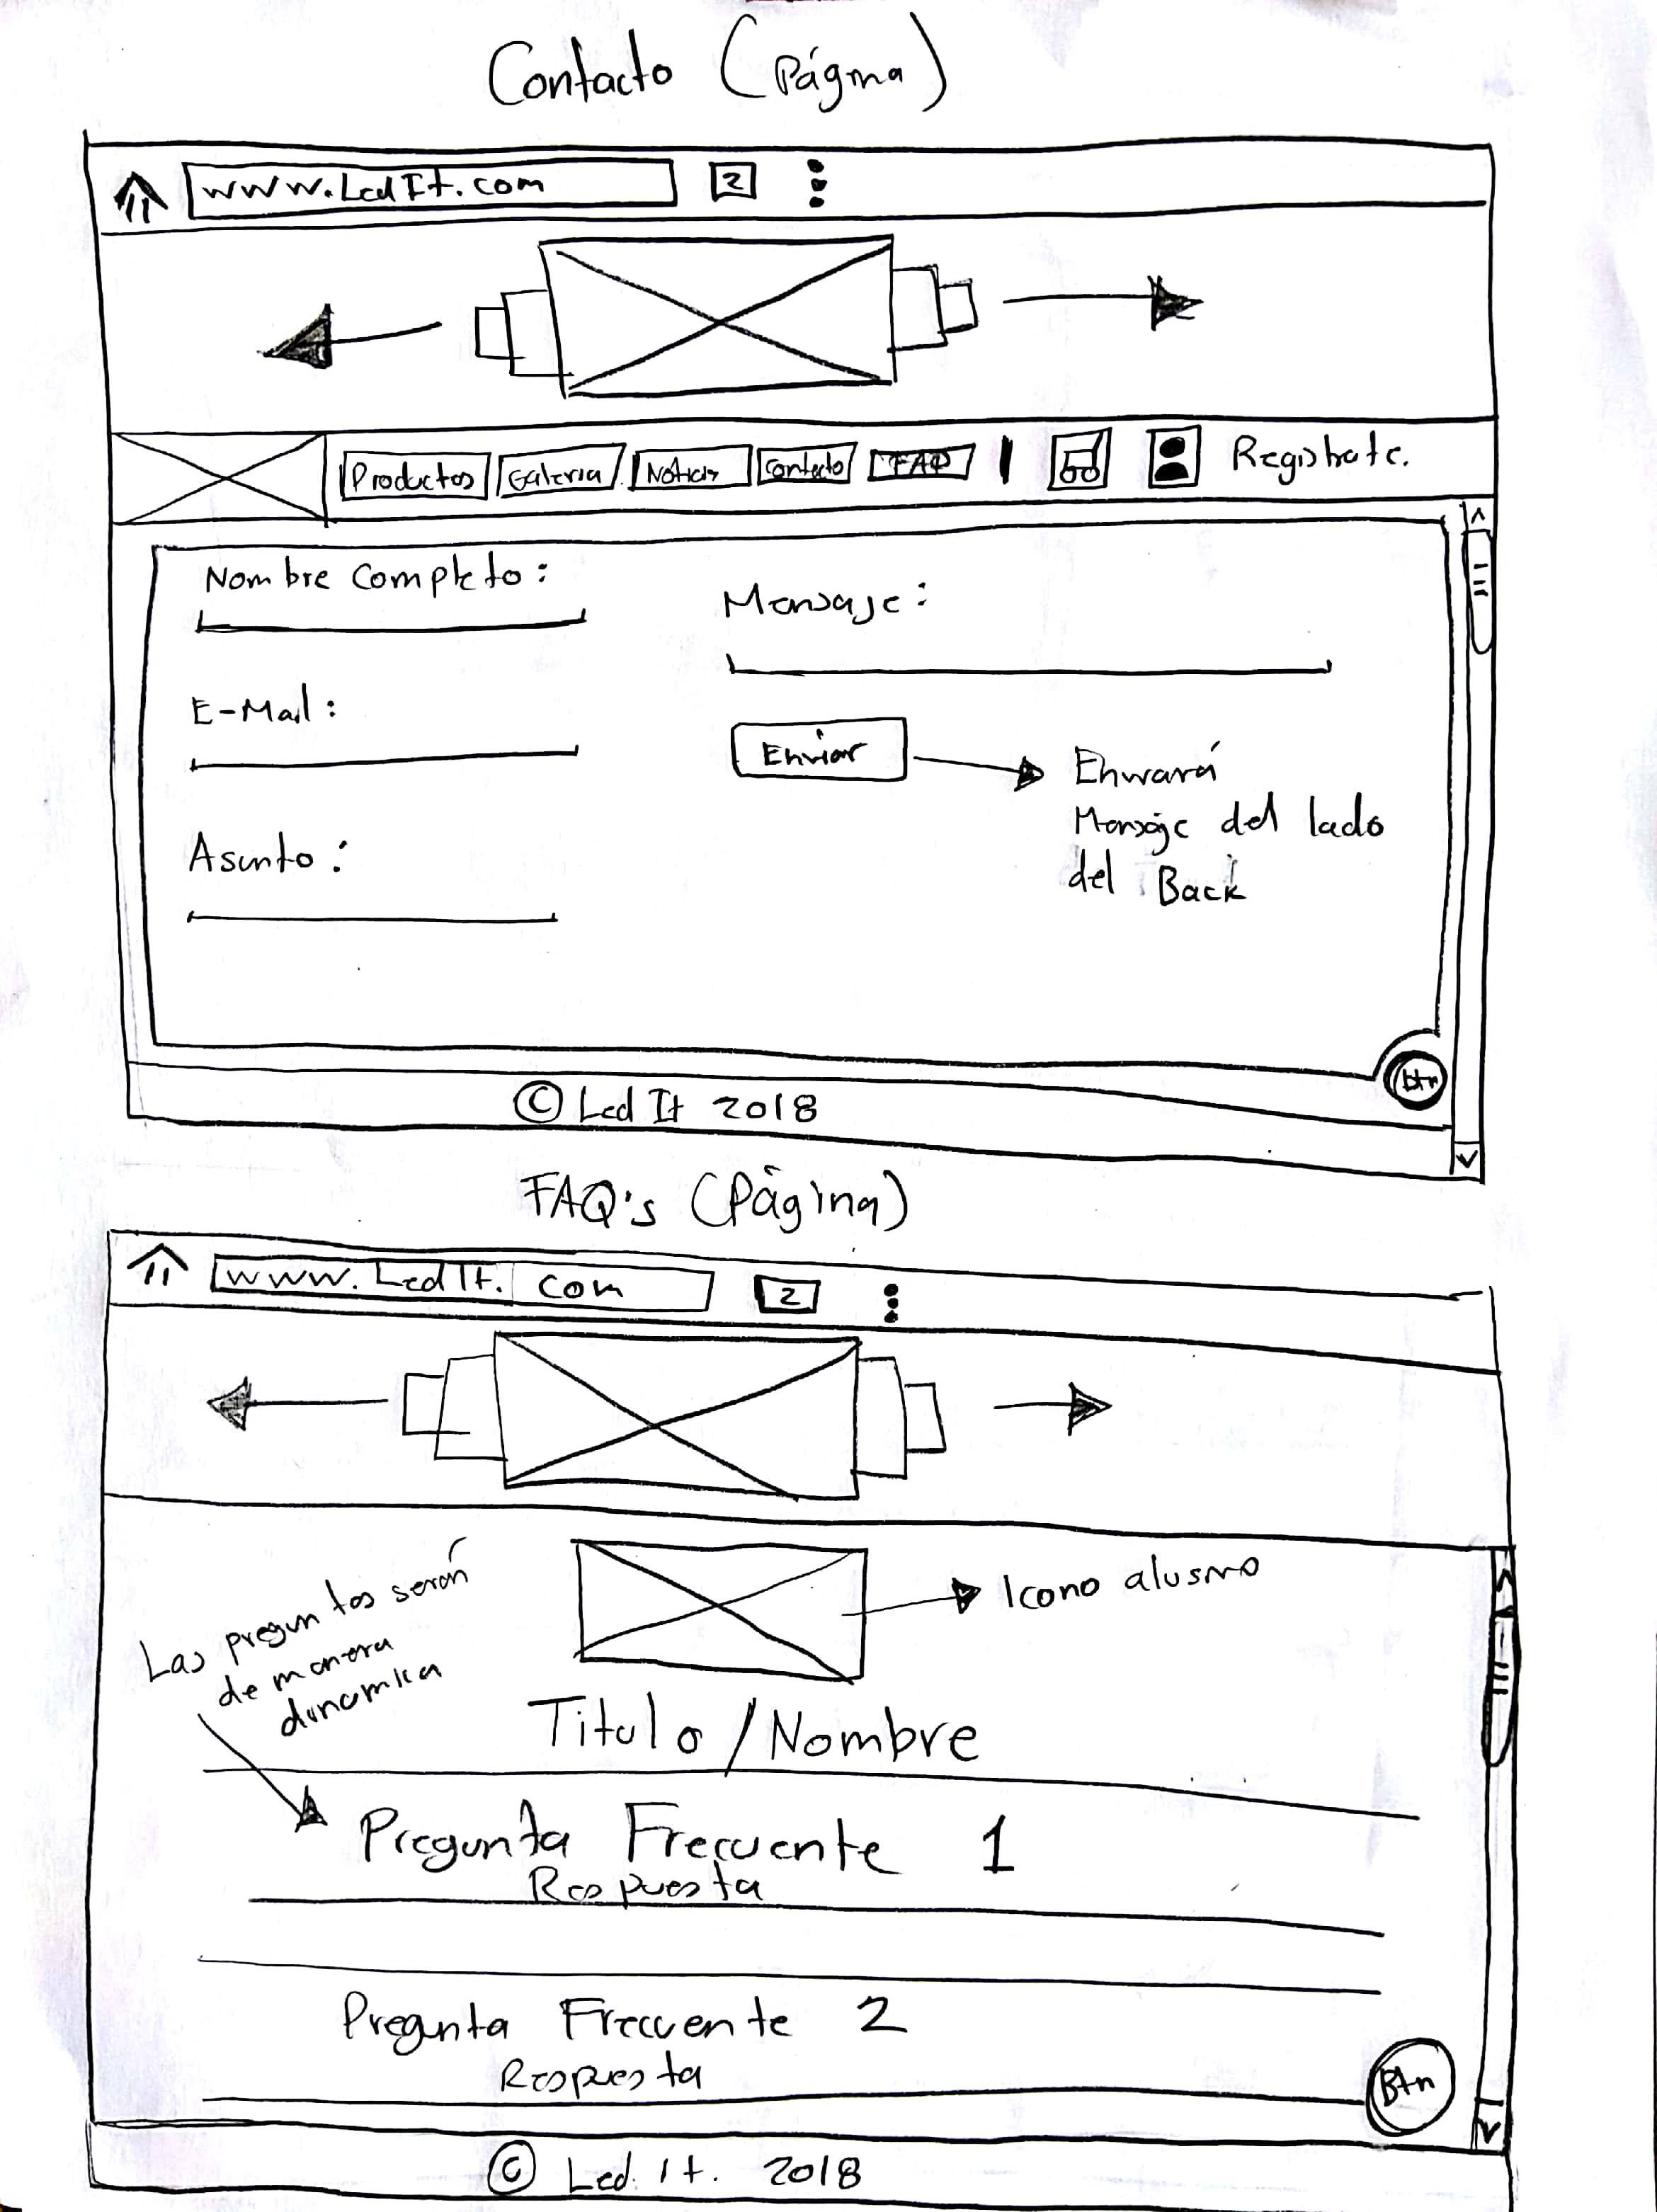 Contacto (Página)
www.Led It.com 2
Productos Galeria Noticias Contacto FAQ Registrate.
Nombre Completo:
Mensaje:
E-Mail:
Enviar
Enviará
Mensaje del lado
del Back
Asunto:
btn
© Led It 2018
FAQ's (Página)
www.Led It. com 2
Icono alusivo
Las preguntas serán
de manera
dinamica
Titulo /Nombre
Pregunta Frecuente 1
Respuesta
Pregunta Frecuente 2
Respuesta
Btn
© Led It. 2018